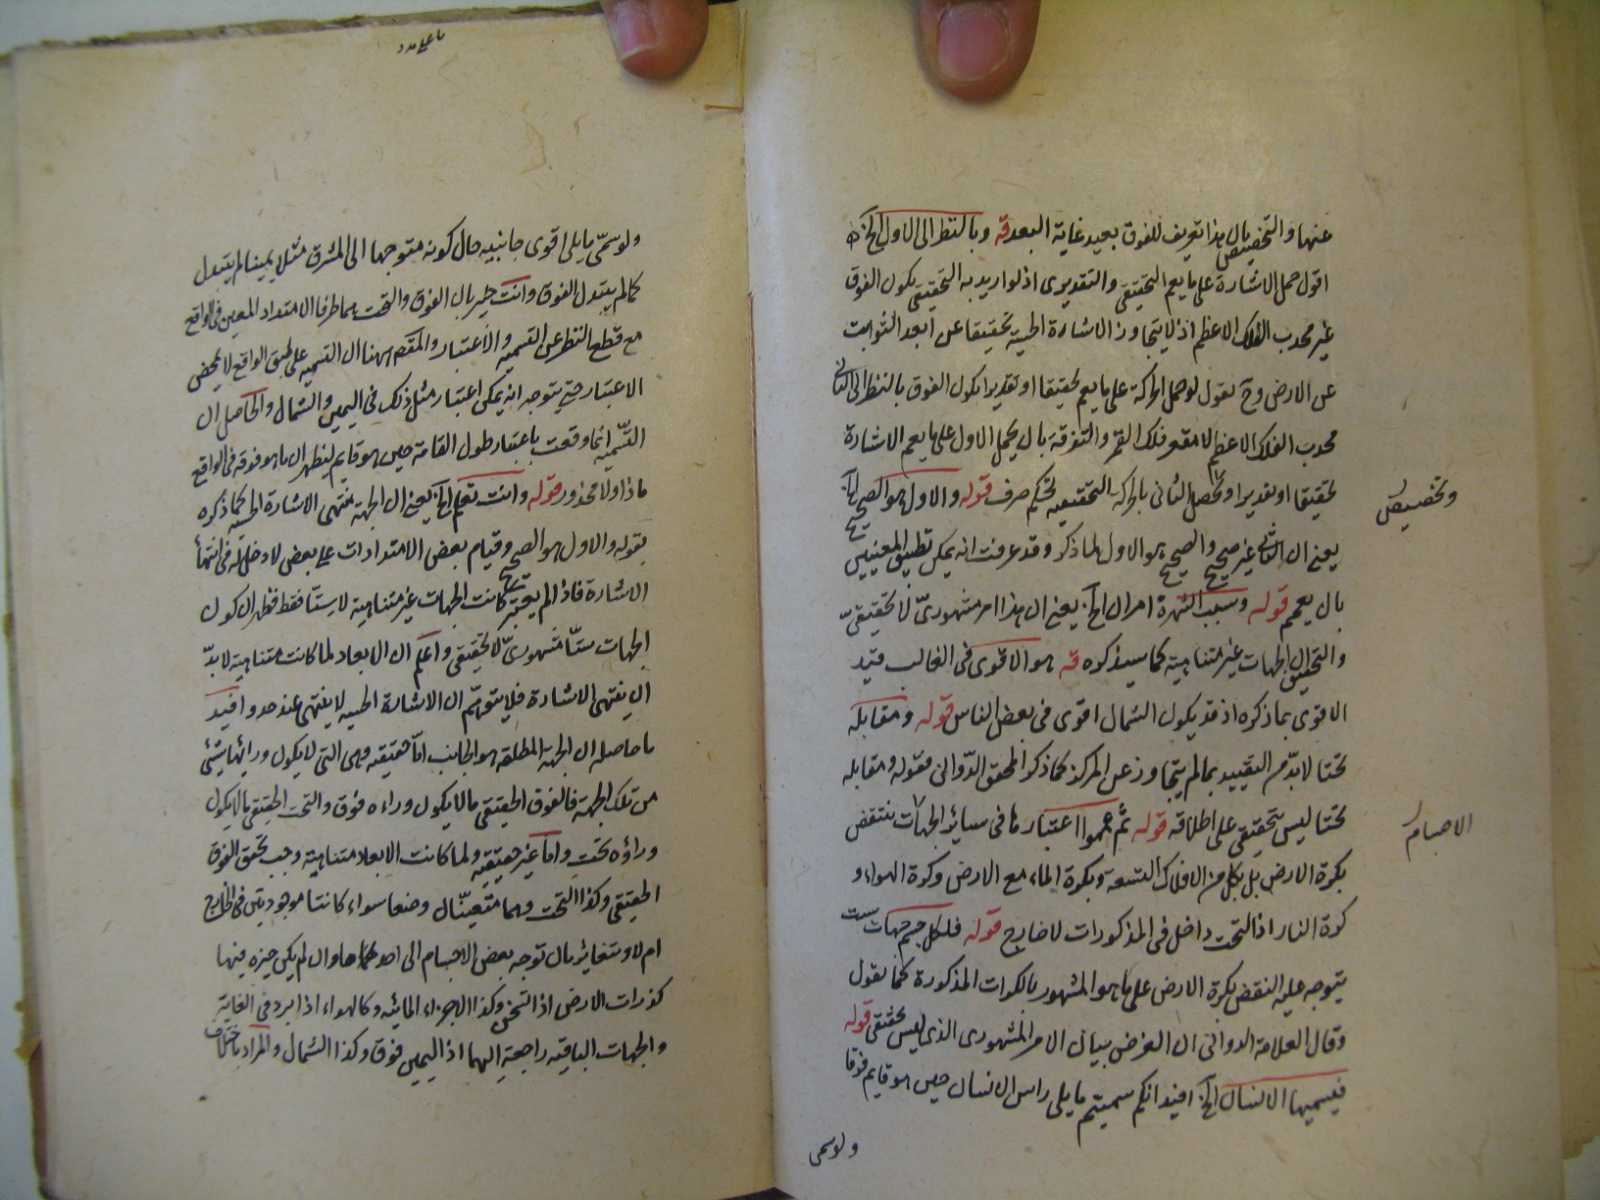 عنها والتخصيص بان هذا تعريف للفوق بعيد غاية البعد قه وبالنظر الى الاول الخ
اقول حمل الاشارة على ما يعم التحقيقى والتقديرى اذ لو اريد به التحقيقى يكون الفوق
غير محدب الفلك الاعظم اذ لا يتجاوز الاشارة الحسية تحقيقا عن ابعد الثوابت
عن الارض وح نقول لو حمل الحركة على ما يعم تحقيقا او تقديرا يكون الفوق بالنظر الى الثانى
محدب الفلك الاعظم لا مقعر فلك القمر والتفرقة بان يحمل الاول على ما يعم الاشارة
تحقيقا او تقديرا وتخصيص الثانى بالحركة التحقيقية تحكم صرف قوله والاول هو الصحيح الخ
يعنى ان الثانى غير صحيح والصحيح هو الاول لما ذكر وقد عرفت انه يمكن تطبيق المعنيين
بان يعمم قوله وسبب الشهرة امران الخ يعنى ان هذا امر مشهورى لا تحقيقى
والتحقيق ان الجهات غير متناهية كما سيذكره قه هو الاقوى فى الغالب قيد
الاقوى بما ذكره اذ قد يكون الشمال اقوى فى بعض الناس قوله ومقابله
تحتا لا بد من التقييد بما لم يتجاوز عن المركز كما ذكر المحقق الدوانى فقوله ومقابله
تحتا ليس بتحقيقى على اطلاقه قوله ثم عمموا اعتبارها فى سائر الاجسام ينتقض
بكرة الارض بل بكل من الافلاك التسعة وبكرة الماء مع الارض وكرة الهواء و
كرة النار اذ التحت داخل فى المذكورات لا خارج قوله فلكل جسم جهات ست
يتوجه عليه النقض بكرة الارض على ما هو المشهور بالكرات المذكورة كما نقول
وقال العلامة الدوانى ان الغرض بيان الامر المشهورى الذى ليس بحقيقى قوله
فيسميها الانسان الخ افيد انكم سميتم ما يلى راس الانسان حين هو قايم فوقا
ولو سمى
وتخصيص
الاجسام
ولو سمى ما يلى اقوى جانبيه حال كونه متوجها الى المشرق مثلا يمينا لم يتبدل
كما لم يتبدل الفوق وانت خبير بان الفوق والتحت هما طرفا الامتداد المعين فى الواقع
مع قطع النظر عن التسمية والاعتبار والمقصود ههنا ان التسمية على طبق الواقع لا بمحض
الاعتبار حتى يتوجه انه يمكن اعتبار مثل ذلك فى اليمين والشمال والحاصل ان
التسمية انما وقعت باعتبار طول القامة حين هو قايم لينظر ان ما هو فوقه فى الواقع
ماذا ولا محذور قوله وانت تعلم الخ يعنى ان الجهة منتهى الاشارة الحسية كما ذكره
بقوله والاول هو الصحيح وقيام بعض الامتدادات على بعض لا دخل له فى انتهاء
الاشارة فاذا لم يعتبر كانت الجهات غير متناهية لا ستا فقط فظهر ان كون
الجهات ستا مشهورى لا تحقيقى واعلم ان الابعاد لما كانت متناهية لا بد
ان ينتهى الاشارة فلا يتوهم ان الاشارة الحسية لا ينتهى عند حد وافيد
ما حاصله ان الجهة المطلقة هو الجانب اما حقيقية وهى التى لا يكون ورائها شئ
من تلك الجهة فالفوق الحقيقى ما لا يكون وراءه فوق والتحت الحقيقى ما لا يكون
وراؤه تحت واما غير حقيقية ولما كانت الابعاد متناهية وجب تحقق الفوق
الحقيقى وكذا التحت وهما متعينان وضعا سواء كانتا موجودتين فى الخارج
ام لا ومتغايزتان توجه بعض الاجسام الى احدهما وان لم يكن حيزه فيها
كذرات الارض اذا التحتى وكذا الاجزاء المائية وكالهواء اذا برد فى الغاية
والجهات الباقية راجعة اليهما اذ اليمين فوق وكذا الشمال والمراد باختلاف